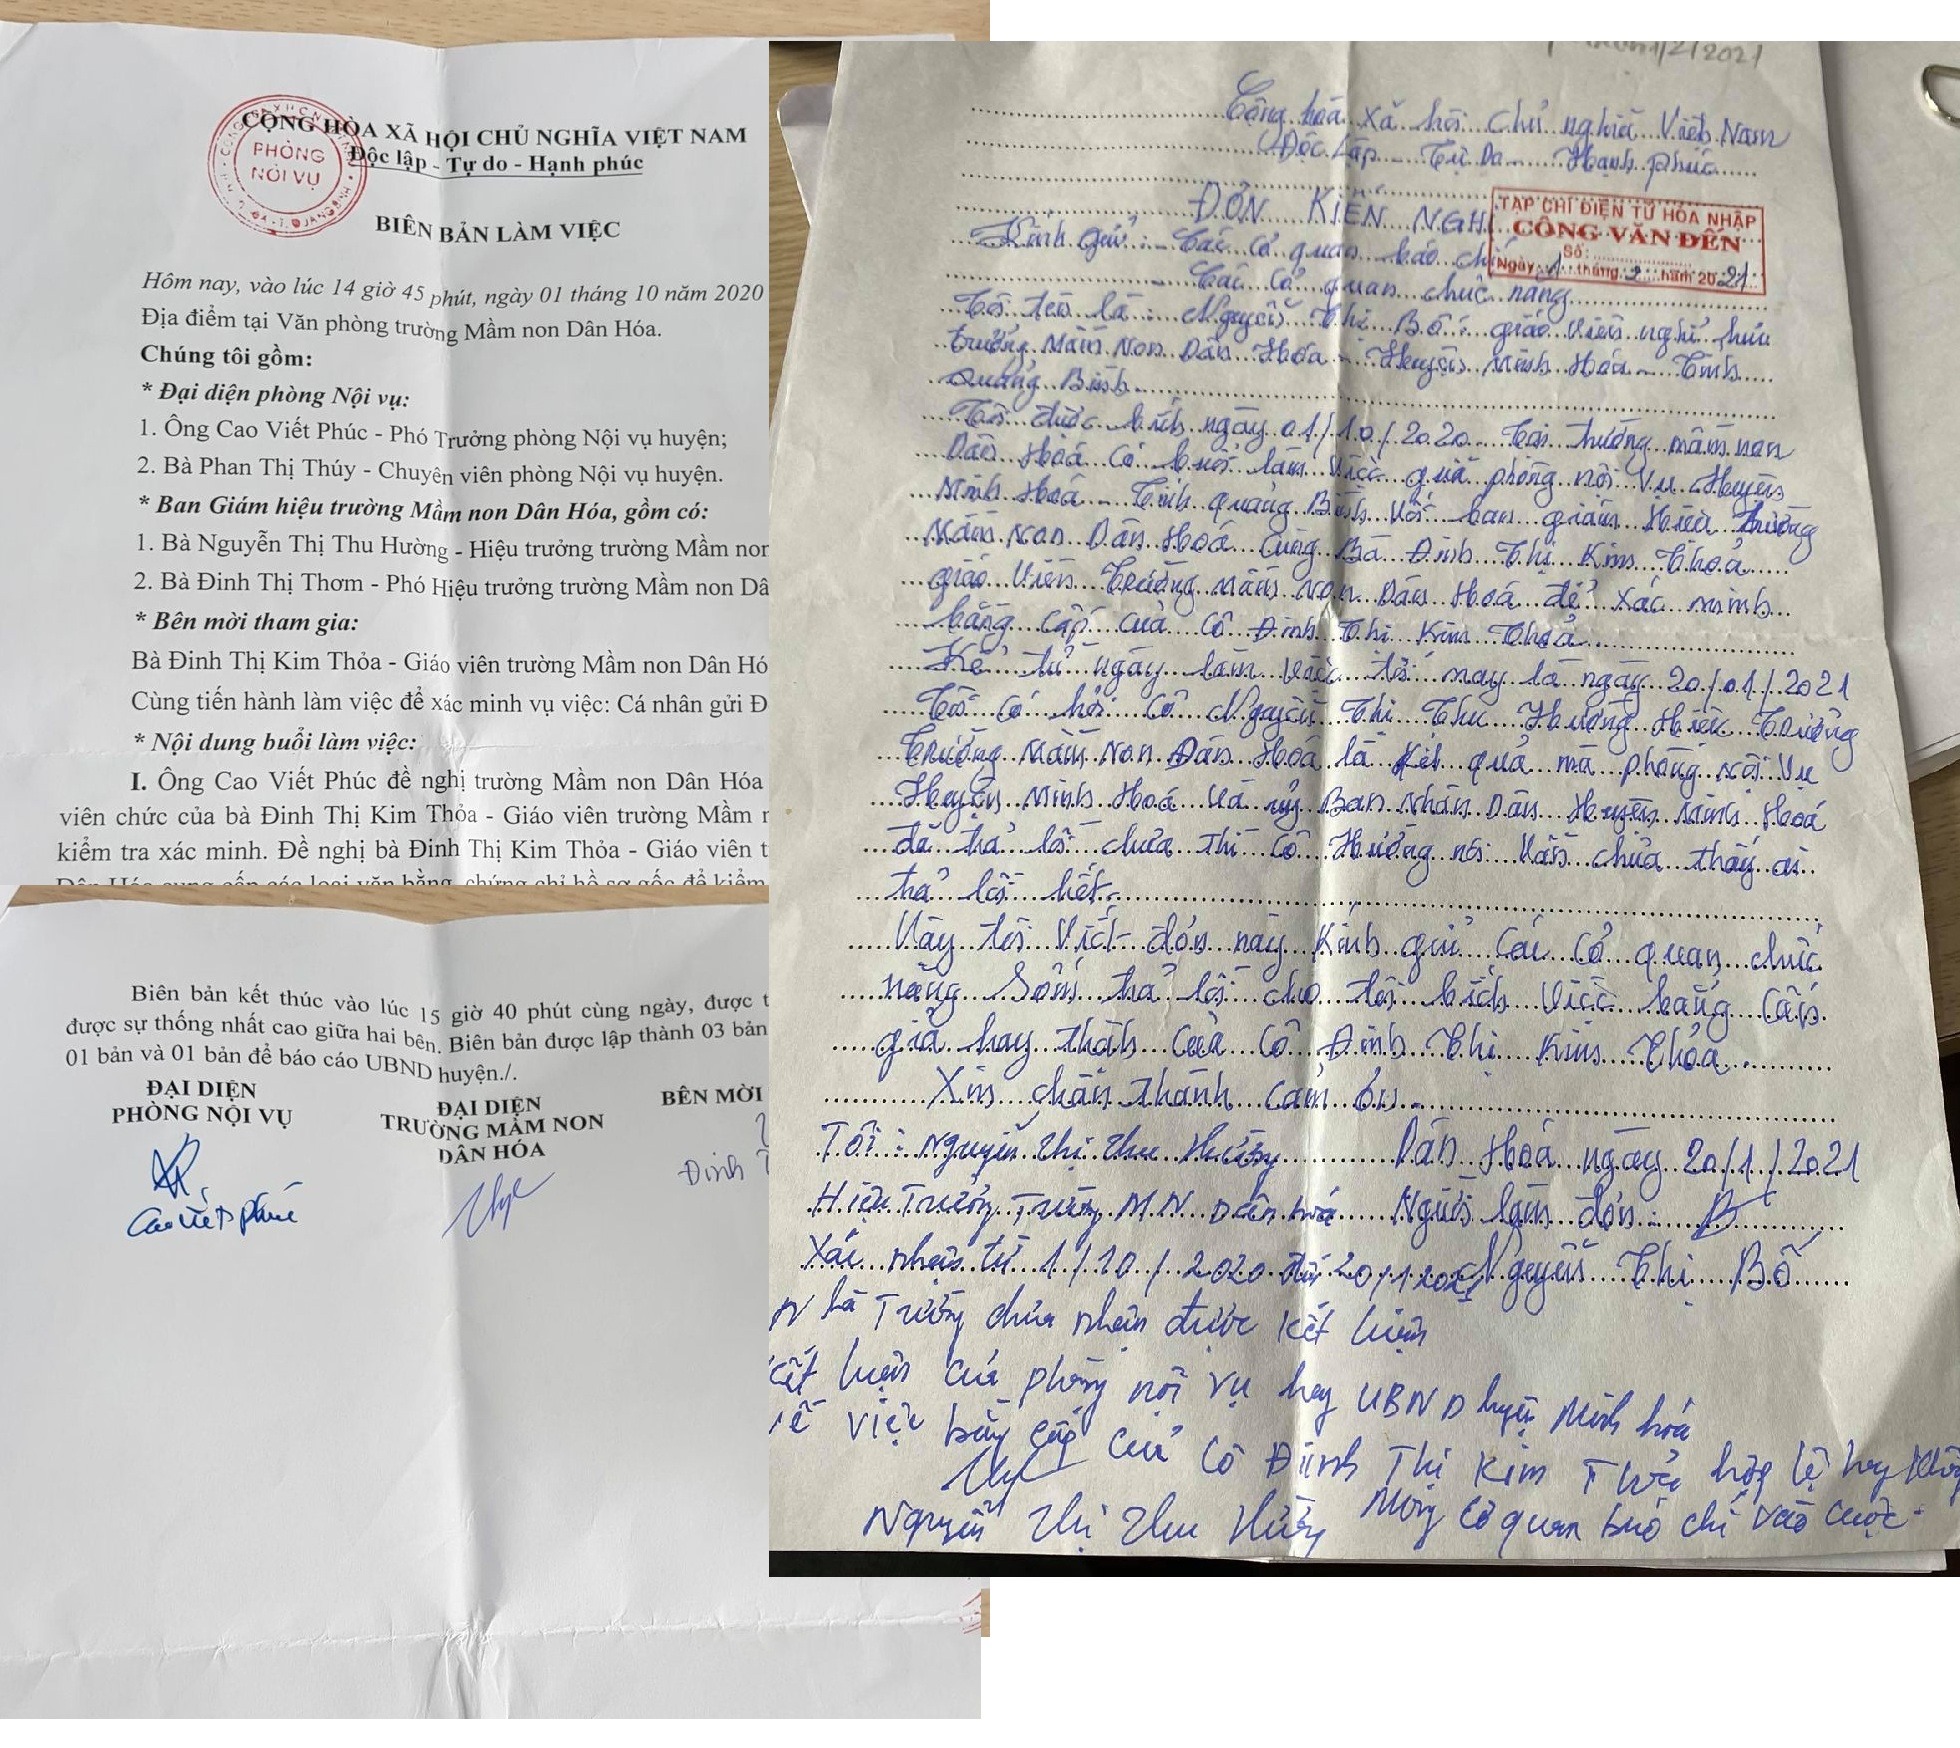 CỘNG HÒA XÃ HỘI CHỦ NGHĨA VIỆT NAM
Độc lập - Tự do - Hạnh phúc
PHÒNG
NỘI VỤ
BIÊN BẢN LÀM VIỆC
Hôm nay, vào lúc 14 giờ 45 phút, ngày 01 tháng 10 năm 2020
Địa điểm tại Văn phòng trường Mầm non Dân Hóa.
Chúng tôi gồm:
* Đại diện phòng Nội vụ:
1. Ông Cao Viết Phúc - Phó Trưởng phòng Nội vụ huyện;
2. Bà Phan Thị Thúy - Chuyên viên phòng Nội vụ huyện.
* Ban Giám hiệu trường Mầm non Dân Hóa, gồm có:
1. Bà Nguyễn Thị Thu Hường - Hiệu trưởng trường Mầm non
2. Bà Đinh Thị Thơm - Phó Hiệu trưởng trường Mầm non Dâ
* Bên mời tham gia:
Bà Đinh Thị Kim Thỏa - Giáo viên trường Mầm non Dân Hó
Cùng tiến hành làm việc để xác minh vụ việc: Cá nhân gửi Đ
* Nội dung buổi làm việc:
I. Ông Cao Viết Phúc đề nghị trường Mầm non Dân Hóa
viên chức của bà Đinh Thị Kim Thỏa - Giáo viên trường Mầm n
kiểm tra xác minh. Đề nghị bà Đinh Thị Kim Thỏa - Giáo viên t
Dân Hóa cung cấp các loại văn bằng, chứng chỉ hồ sơ gốc để kiểm
Biên bản kết thúc vào lúc 15 giờ 40 phút cùng ngày, được t
được sự thống nhất cao giữa hai bên. Biên bản được lập thành 03 bản
01 bản và 01 bản để báo cáo UBND huyện./.
ĐẠI DIỆN
PHÒNG NỘI VỤ
ĐẠI DIỆN
TRƯỜNG MẦM NON
DÂN HÓA
BÊN MỜI
Cao Viết Phúc
Đinh T
/2/2021
Cộng hoà Xã hội Chủ nghĩa Việt Nam
Độc Lập - Tự Do - Hạnh phúc
ĐƠN KIẾN NGH
TẠP CHÍ ĐIỆN TỬ HÒA NHẬP
CÔNG VĂN ĐẾN
Số:
Ngày 1 tháng 2 năm 2021
Kính gửi: Các cơ quan báo chí
Các cơ quan chức năng
Tôi tên là: Nguyễn Thị Bố: giáo viên nghỉ hưu
trường Mầm Non Dân Hoá - Huyện Minh Hoá - Tỉnh
Quảng Bình
Tôi được biết ngày 01/10/2020 tại trường mầm non
Dân Hoá có buổi làm việc giữa phòng nội vụ Huyện
Minh Hoá - Tỉnh Quảng Bình với ban giám Hiệu trường
Mầm Non Dân Hoá cùng Bà Đinh Thị Kim Thoả
giáo viên trường Mầm Non Dân Hoá để xác minh
bằng cấp của cô Đinh Thị Kim Thoả
Kể từ ngày làm việc tới nay là ngày 20/01/2021
Tôi có hỏi cô Nguyễn Thị Thu Hường Hiệu Trưởng
trường Mầm Non Dân Hoá là kết quả mà phòng nội vụ
Huyện Minh Hoá và uỷ Ban Nhân Dân Huyện Minh Hoá
đã trả lời chưa thì cô Hường nói vẫn chưa thấy ai
trả lời hết.
Vậy tôi viết đơn này kính gửi các cơ quan chức
năng sớm trả lời cho tôi biết việc bằng cấp
giả hay thật của cô Đinh Thị Kim Thỏa.
Xin chân thành cảm ơn
Dân Hoá ngày 20/1/2021
Người làm đơn: B
Nguyễn Thị Bố
Tôi: Nguyễn Thị Thu Hường
Hiệu Trưởng Trường MN Dân hoá
Xác nhận từ 1/10/2020 đến 20/1/2021
Nhà Trường chưa nhận được kết luận
kết luận của phòng nội vụ hay UBND huyện Minh hóa
về việc bằng cấp của Cô Đinh Thị Kim Thỏa hợp lệ hay không
Mong cơ quan báo chí vào cuộc.
Nguyễn Thị Thu Hường